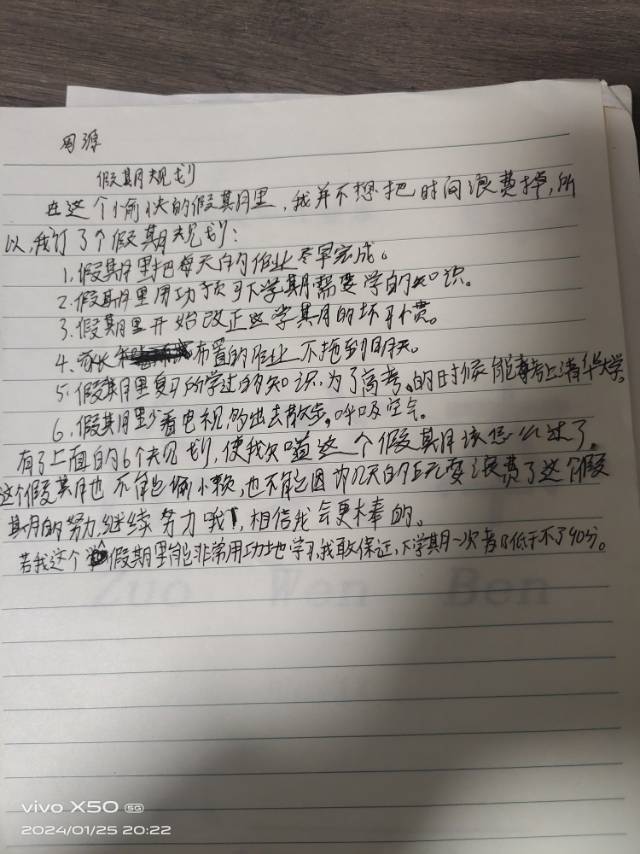 周源
假期规划
在这个愉快的假期里，我并不想把时间浪费掉，所
以，我订了个假期规划：
1.假期里把每天的作业尽早完成。
2.假期里用功预习下学期需要学的知识。
3.假期里开始改正这学期的坏习惯。
4.家长布置的作业不拖到明天。
5.假期里复习所学过的知识，为了高考的时候能考上清华大学。
6.假期里少看电视，多出去散步，呼吸空气。
有了上面的6个规划，使我知道这个假期该怎么过了。
这个假期也不能偷小懒，也不能因为几天的玩耍浪费了这个假
期的努力，继续努力哦！相信我会更棒的。
若我这个假期里能非常用功地学习，我敢保证，下学期一次都低于不了90分。
Zuo Wen Ben
vivo X50 5G
2024/01/25 20:22